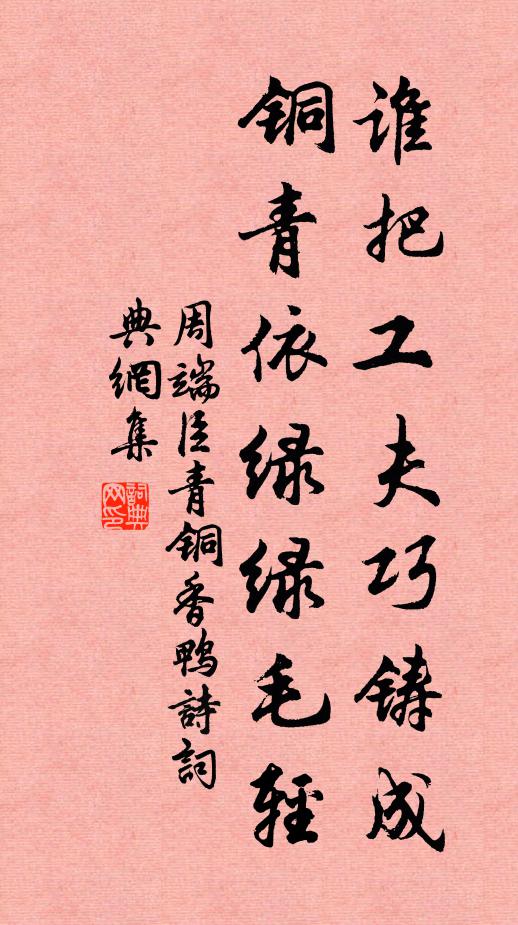 谁把工夫巧铸成
铜青依绿绿毛轻
周端臣青铜香鸭詩詞
典網集
詞典網印